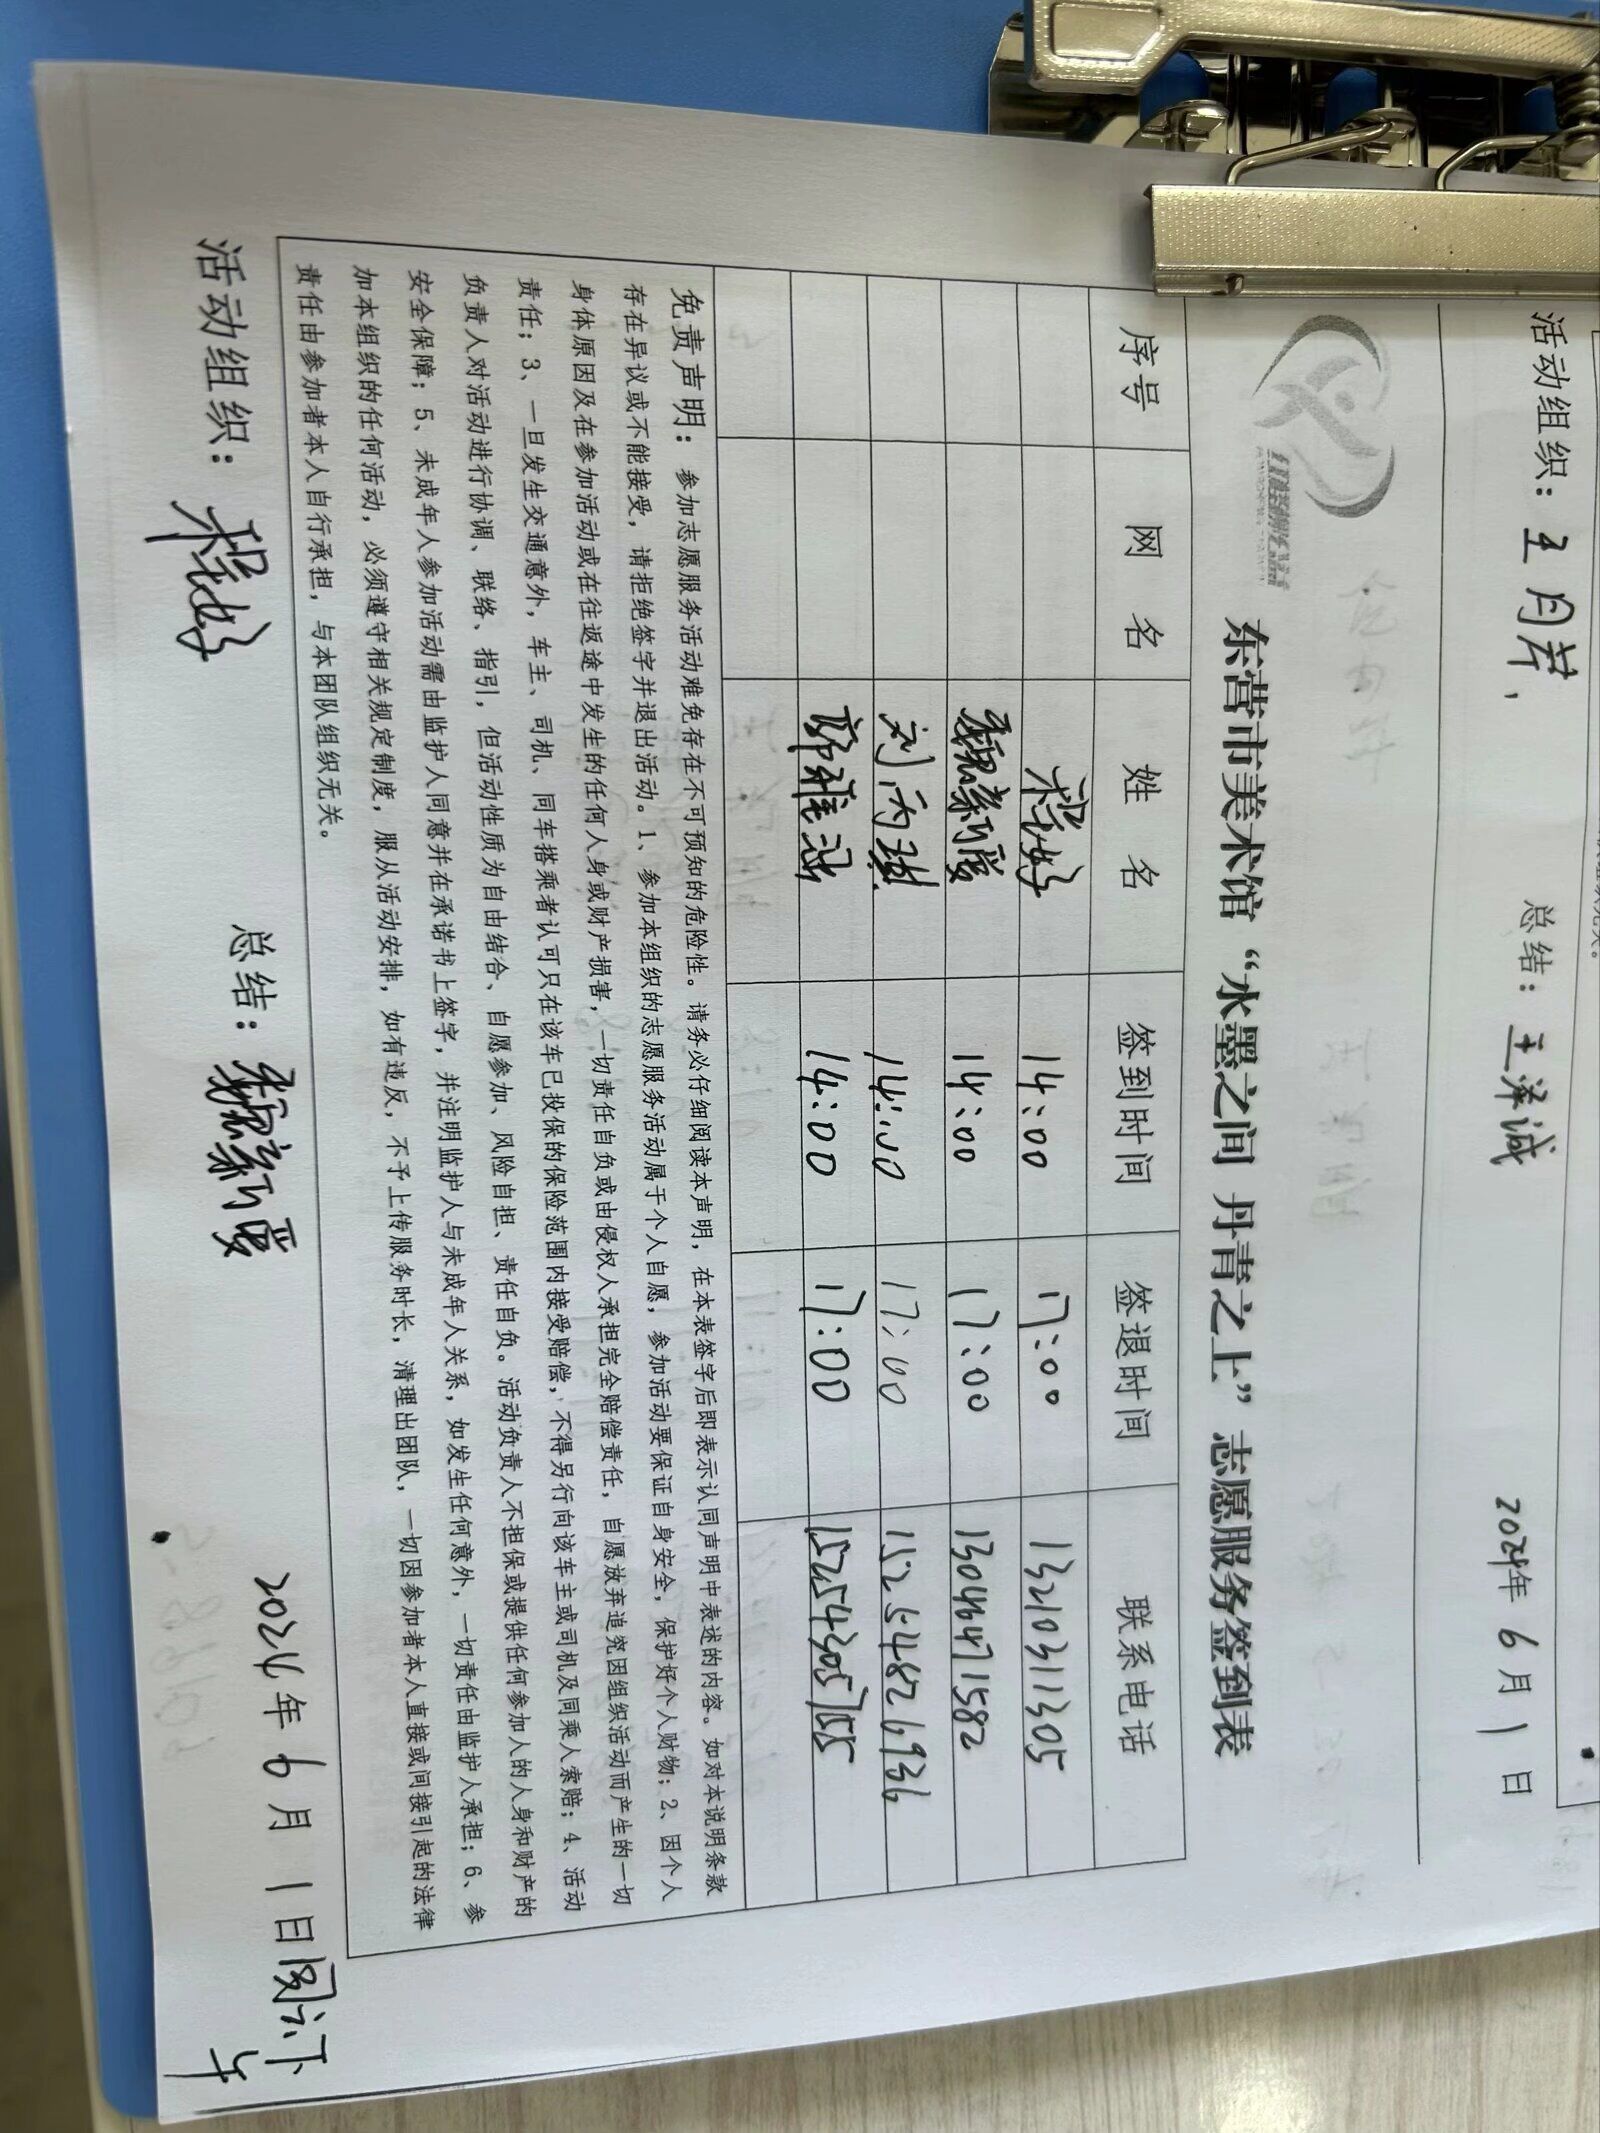 活动组织：王月芹，　总结：王泽诚　2024年 6月 1日
东营市美术馆“水墨之间 丹青之上”志愿服务签到表
序号　网 名　姓 名　签到时间　签退时间　联系电话
14:00　17:00　13210311305
14:00　17:00　13046471582
刘丙琪　14:00　17:00　15254826936
14:00　17:00　15254305755
免责声明：参加志愿服务活动难免存在不可预知的危险性。请务必仔细阅读本声明，在本表签字后即表示认同声明中表述的内容。如对本说明条款
存在异议或不能接受，请拒绝签字并退出活动。1、参加本组织的志愿服务活动属于个人自愿，参加活动要保证自身安全，保护好个人财物；2、因个人
身体原因及在参加活动或在往返途中发生的任何人身或财产损害，一切责任自负或由侵权人承担完全赔偿责任，自愿放弃追究因组织活动而产生的一切
责任；3、一旦发生交通意外，车主、司机、同车搭乘者认可只在该车已投保的保险范围内接受赔偿，不得另行向该车主或司机及同乘人索赔；4、活动
负责人对活动进行协调、联络、指引，但活动性质为自由结合、自愿参加、风险自担、责任自负。活动负责人不担保或提供任何参加人的人身和财产的
安全保障；5、未成年人参加活动需由监护人同意并在承诺书上签字，并注明监护人与未成年人关系，如发生任何意外，一切责任由监护人承担；6、参
加本组织的任何活动，必须遵守相关规定制度，服从活动安排，如有违反，不予上传服务时长，清理出团队，一切因参加者本人直接或间接引起的法律
责任由参加者本人自行承担，与本团队组织无关。
活动组织：　总结：　2024年 6月 1日 下午